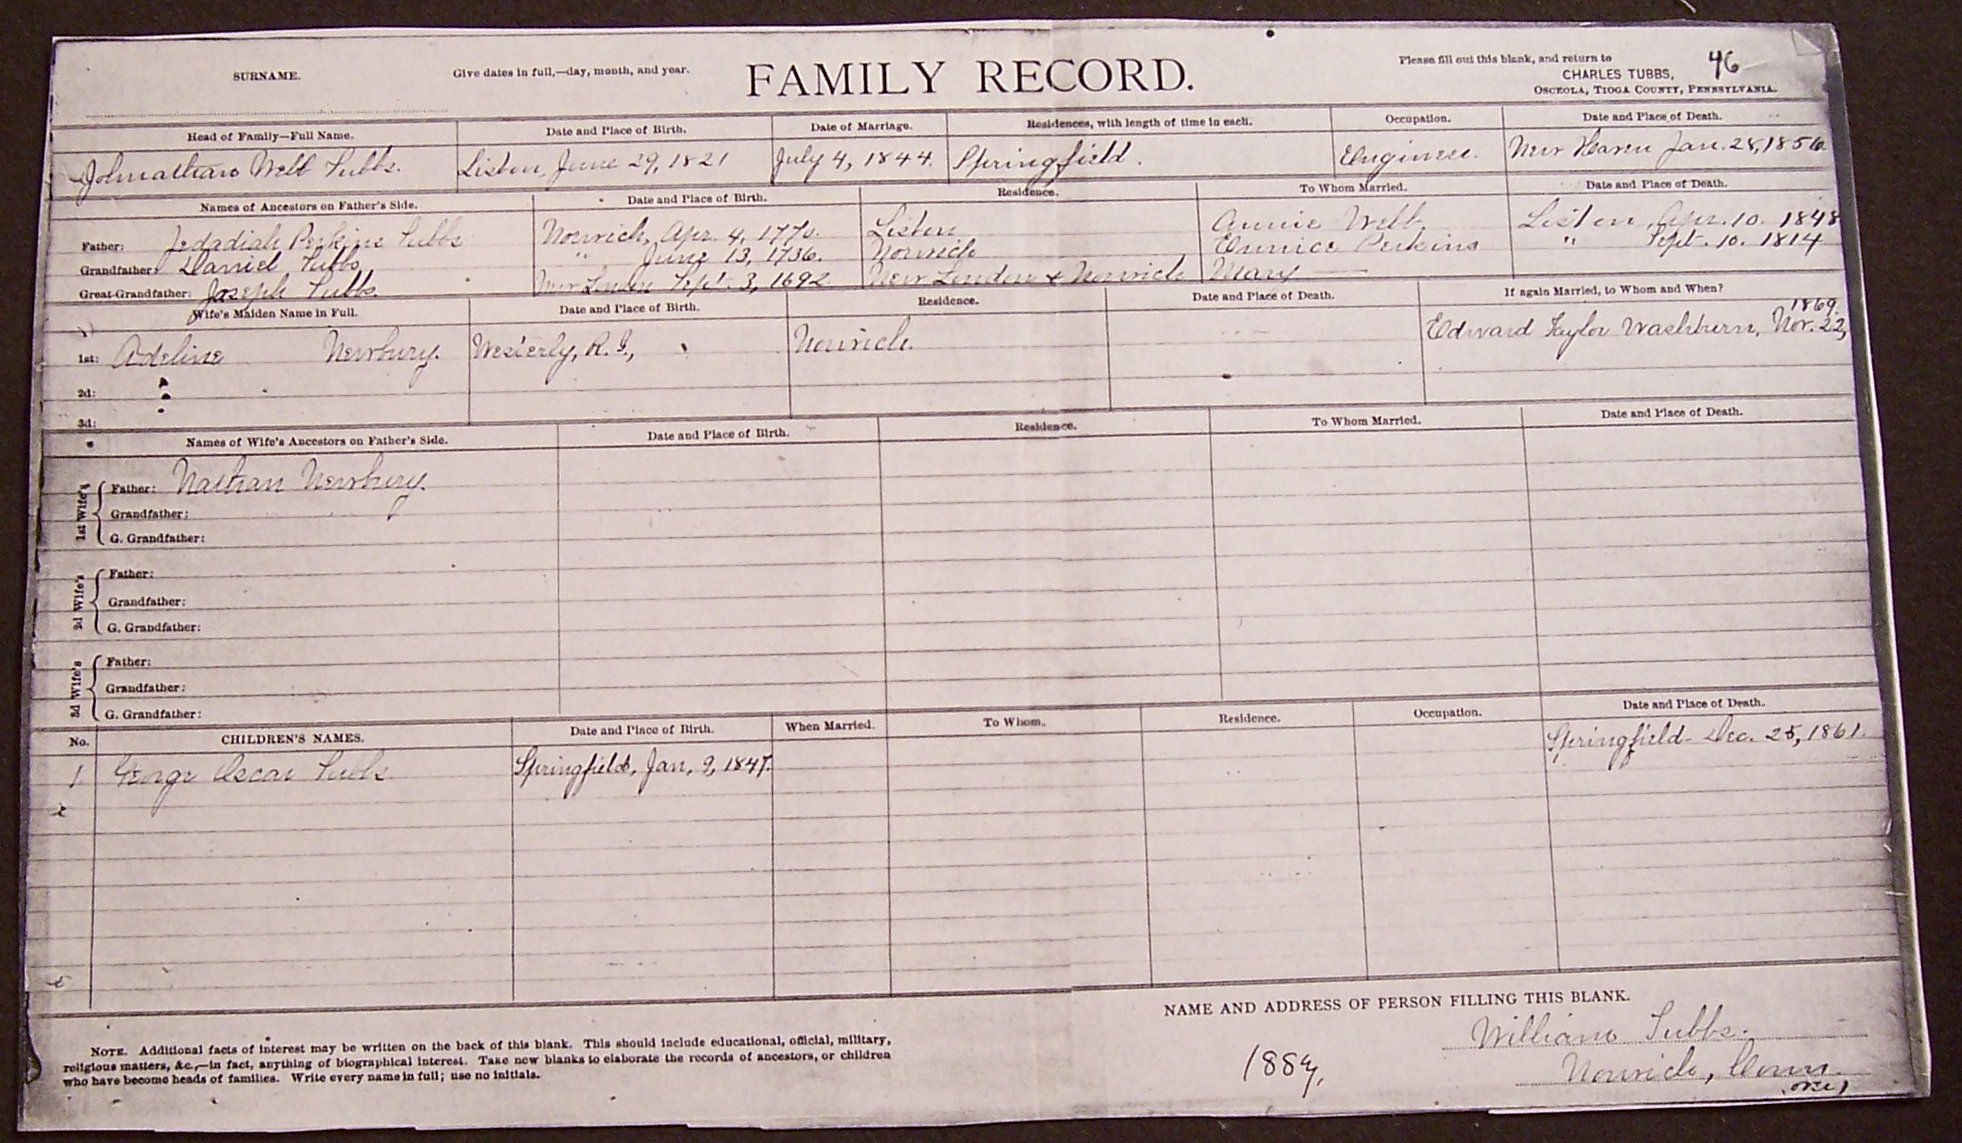 SURNAME. Give dates in full,—day, month, and year. FAMILY RECORD. Please fill out this blank, and return to 46
CHARLES TUBBS,
OSCEOLA, TIOGA COUNTY, PENNSYLVANIA.
Head of Family—Full Name. Date and Place of Birth. Date of Marriage. Residences, with length of time in each. Occupation. Date and Place of Death.
Johnathan Webb Tubbs. Lisbon, June 29, 1821 July 4, 1844. Springfield. Engineer. New Haven Jan. 28, 1856
Names of Ancestors on Father's Side. Date and Place of Birth. Residence. To Whom Married. Date and Place of Death.
Father: Jedadiah Perkins Tubbs Norwich, Apr. 4, Lisbon Annie Webb. Lisbon, Apr. 10. 1848
Grandfather: Daniel Tubbs " June 13, 1736. Norwich Eunice Perkins " Sept. 10. 1814
Great-Grandfather: Joseph Tubbs. New London Sept. 3, 1692 New London & Norwich Mary —
Wife's Maiden Name in Full. Date and Place of Birth. Residence. Date and Place of Death. If again Married, to Whom and When?
1st: Adeline Newbury. Westerly, R. I., Norwich. Edward Taylor Washburn, Nov. 22, 1869.
2d:
3d:
Names of Wife's Ancestors on Father's Side. Date and Place of Birth. Residence. To Whom Married. Date and Place of Death.
1st Wife's Father: Nathan Newbury.
Grandfather:
G. Grandfather:
2d Wife's Father:
Grandfather:
G. Grandfather:
3d Wife's Father:
Grandfather:
G. Grandfather:
No. CHILDREN'S NAMES. Date and Place of Birth. When Married. To Whom. Residence. Occupation. Date and Place of Death.
1 George Oscar Tubbs Springfield, Jan. 9, 1847. Springfield. Dec. 25, 1861.
2
NAME AND ADDRESS OF PERSON FILLING THIS BLANK.
William Tubbs.
1889, Norwich, Conn.
(over)
NOTE. Additional facts of interest may be written on the back of this blank. This should include educational, official, military,
religious matters, &c.,—in fact, anything of biographical interest. Take new blanks to elaborate the records of ancestors, or children
who have become heads of families. Write every name in full; use no initials.